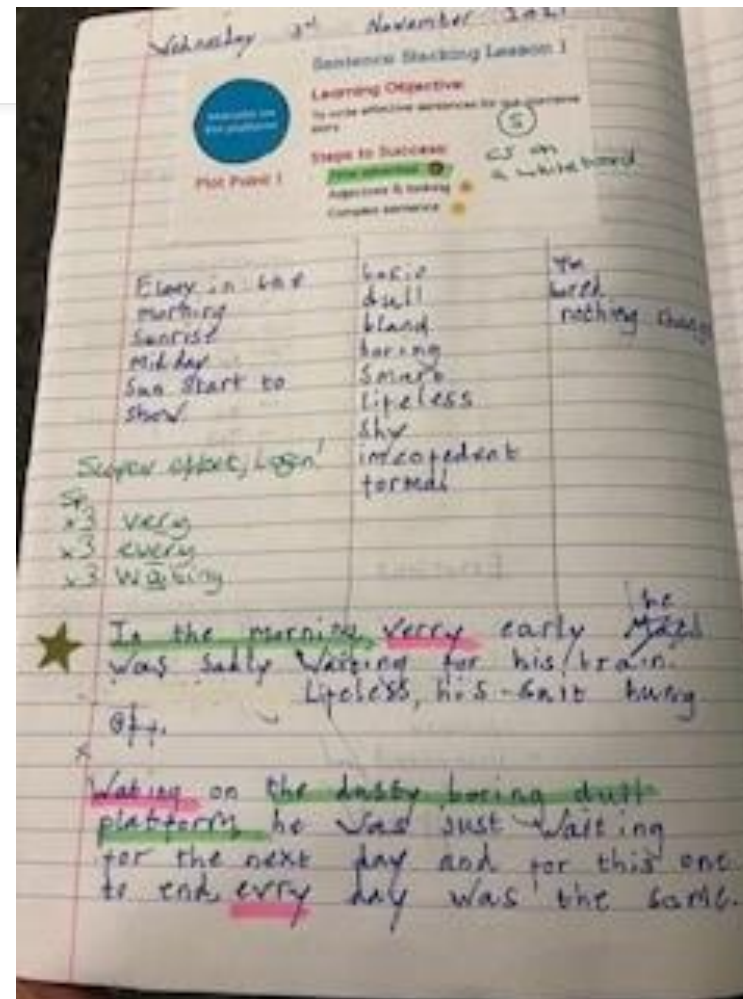 Wednesday 3rd November 2021
Sentence Stacking Lesson 1
Learning Objective:
To write effective sentences for our narrative
story
S
Steps to Success:
CJ on
a whiteboard
Plot Point 1
Adjectives & looking
Complex sentence
in the
morning
Sunrise
Midday
Sun Start to
show.
dull
bland
boring
Smart
Lifeless
Shy
formal
bored
nothing
Super effort,
Sp
x3 very
x3 every
x3 waiting
he
In the morning, verry early
was sadly Waiting for his train.
Lifeless, his suit hung
off.
Wating on the dusty boring dull
platform, he was just Waiting
for the next day and for this one
to end, evry day was the same.